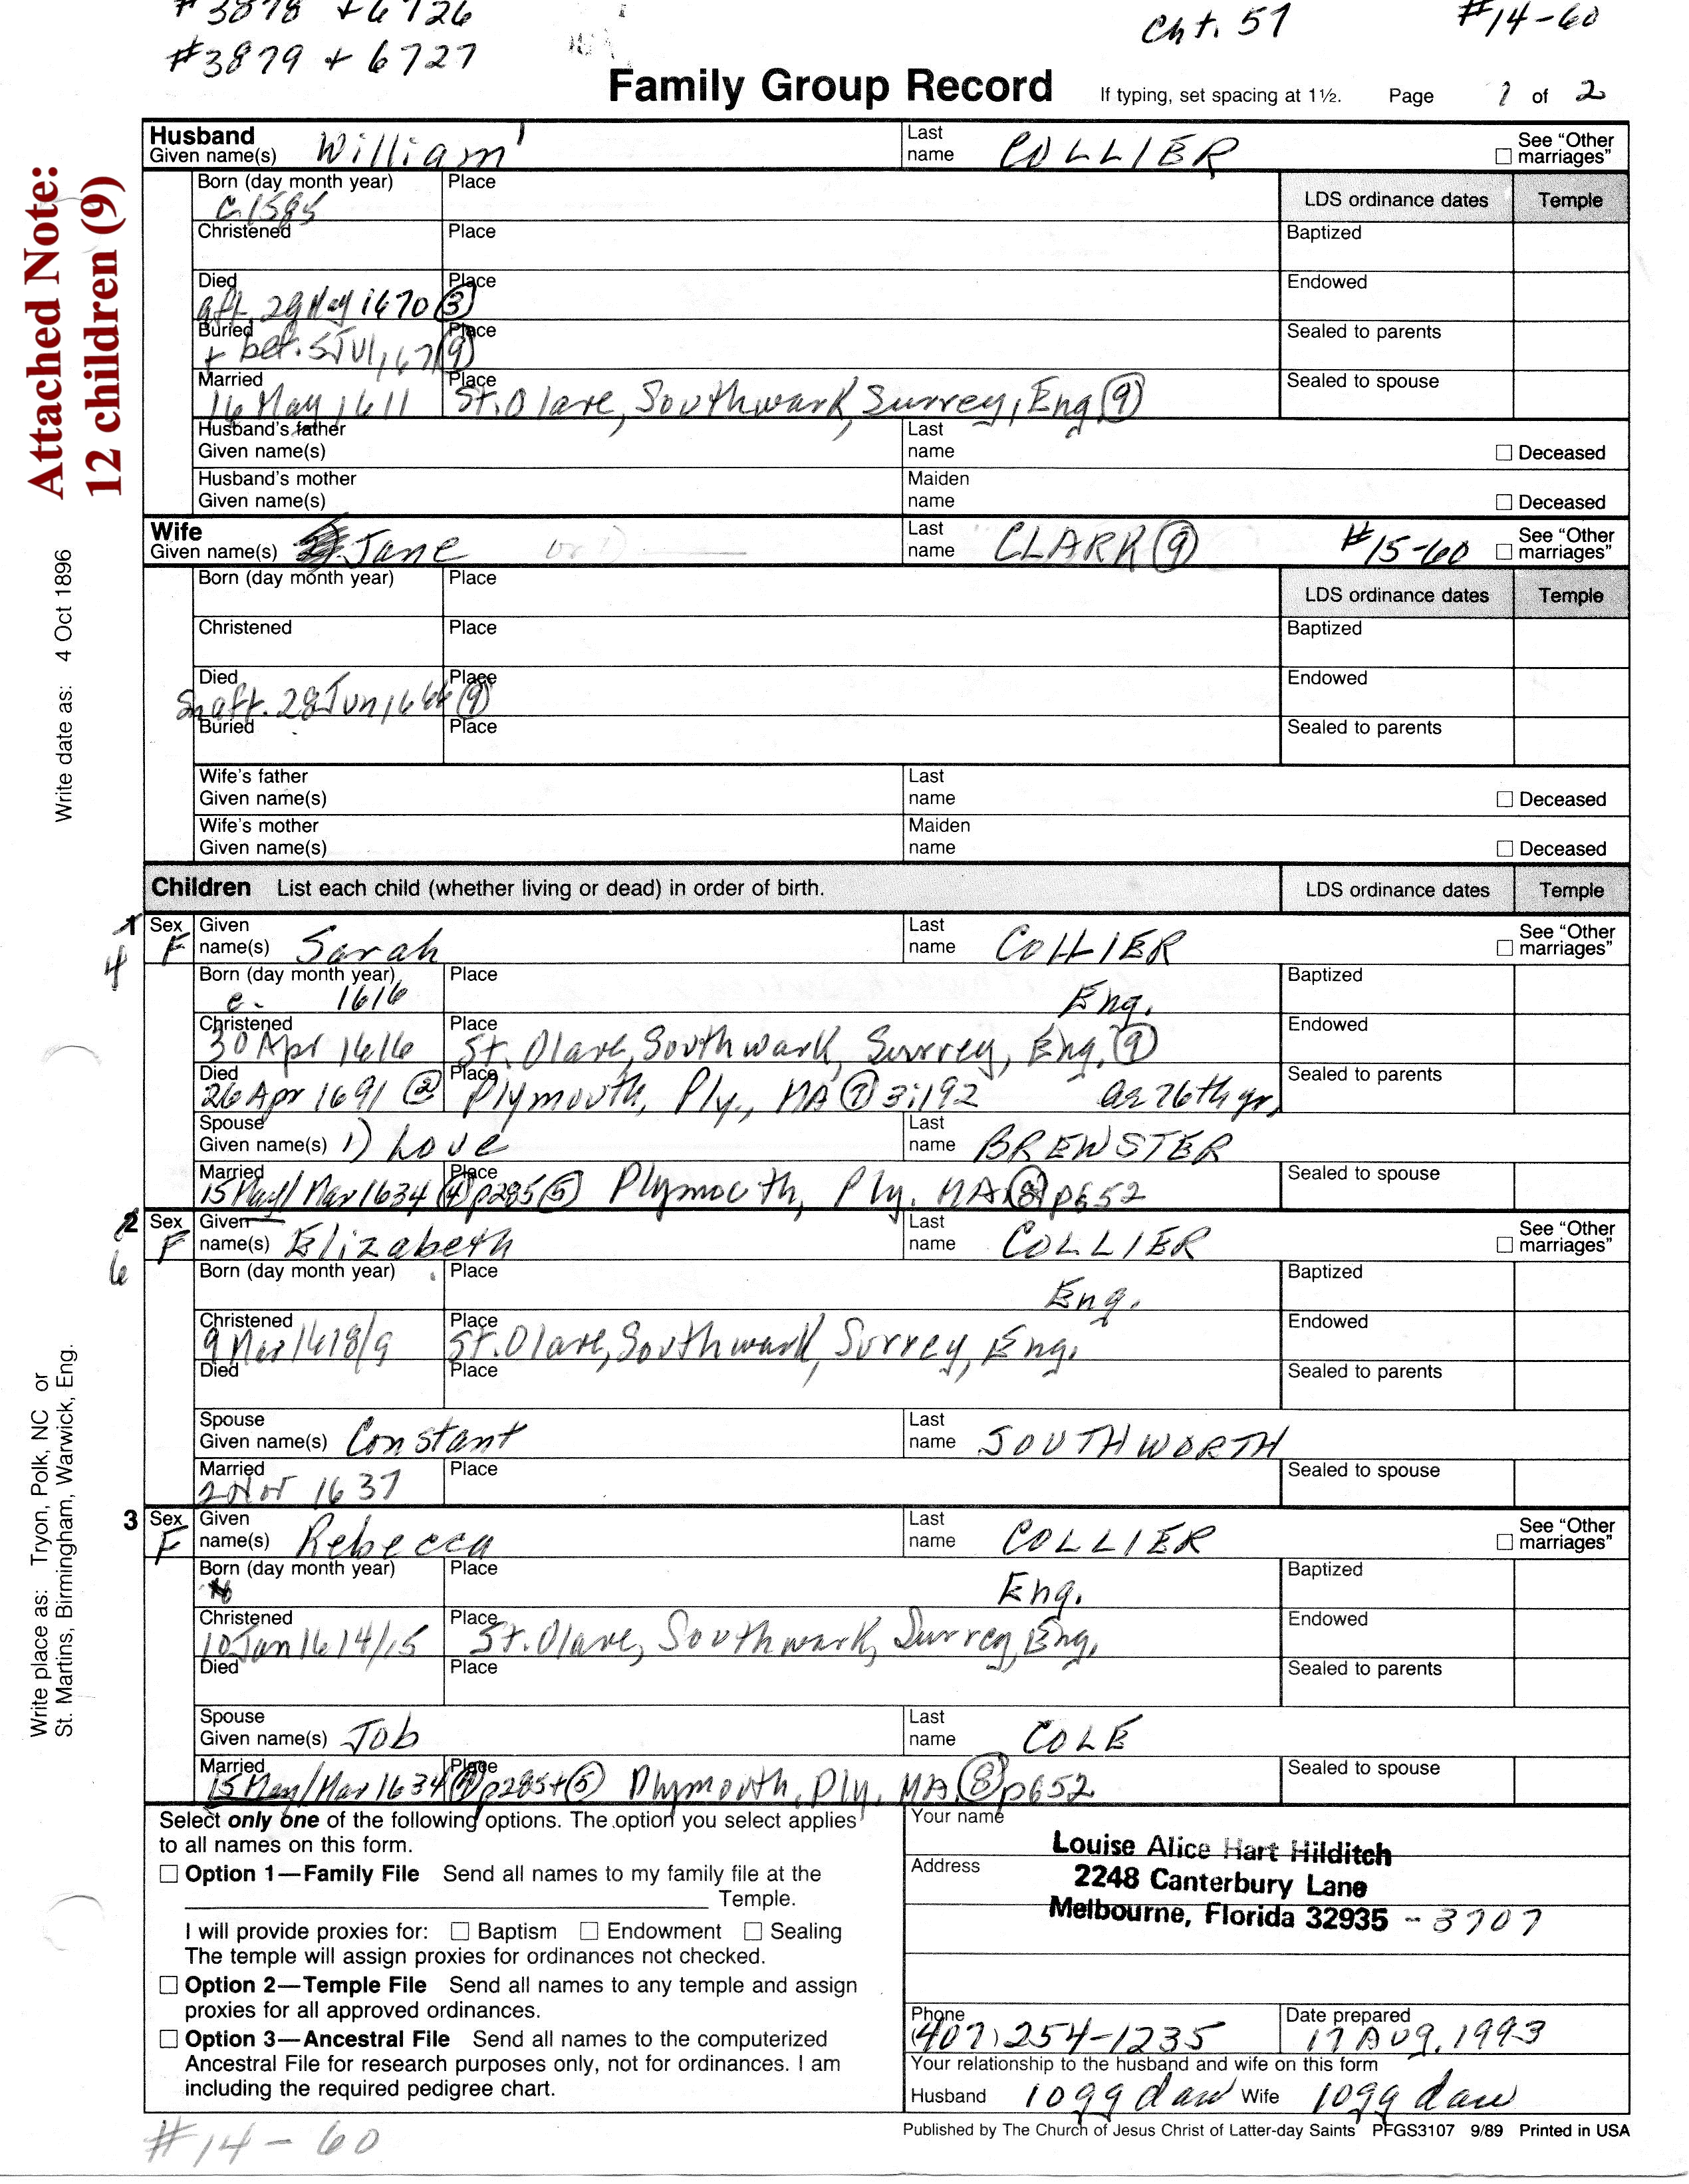 #3878 + 6726
#3879 + 6727
Cht. 51
#14-60
Family Group Record
If typing, set spacing at 1½. Page 1 of 2
Attached Note:
12 children (9)
Write date as: 4 Oct 1896
Write place as: Tryon, Polk, NC or
St. Martins, Birmingham, Warwick, Eng.
Husband
Given name(s) William
Last name COLLIER
See "Other marriages"
Born (day month year) Place
c. 1585
LDS ordinance dates Temple
Christened Place
Baptized
Died Place
aft. 29 May 1670 (3)
Endowed
Buried Place
+ bef. 5 Jul, 167 (9)
Sealed to parents
Married Place
16 May 1611 St. Olave, Southwark, Surrey, Eng (9)
Sealed to spouse
Husband's father
Given name(s)
Last name
Deceased
Husband's mother
Given name(s)
Maiden name
Deceased
Wife
Given name(s) Jane
Last name CLARK (9) #15-60
See "Other marriages"
Born (day month year) Place
LDS ordinance dates Temple
Christened Place
Baptized
Died Place
aft. 28 Jun 1666 (9)
Endowed
Buried Place
Sealed to parents
Wife's father
Given name(s)
Last name
Deceased
Wife's mother
Given name(s)
Maiden name
Deceased
Children List each child (whether living or dead) in order of birth.
LDS ordinance dates Temple
1
4
Sex F
Given name(s) Sarah
Last name COLLIER
See "Other marriages"
Born (day month year) Place
c. 1616 Eng.
Baptized
Christened Place
30 Apr 1616 St. Olave, Southwark, Surrey, Eng. (9)
Endowed
Died Place
26 Apr 1691 (2) Plymouth, Ply., MA (7) 3:192 ae 76th yr,
Sealed to parents
Spouse
Given name(s) 1) Love
Last name BREWSTER
Married Place
15 May/Mar 1634 (4) p285 (5) Plymouth, Ply. MA (8) p652
Sealed to spouse
2
6
Sex F
Given name(s) Elizabeth
Last name COLLIER
See "Other marriages"
Born (day month year) Place
Eng.
Baptized
Christened Place
9 Mar 1618/9 St. Olave, Southwark, Surrey, Eng.
Endowed
Died Place
Sealed to parents
Spouse
Given name(s) Constant
Last name SOUTHWORTH
Married Place
2 Nov 1637
Sealed to spouse
3
Sex F
Given name(s) Rebecca
Last name COLLIER
See "Other marriages"
Born (day month year) Place
Eng.
Baptized
Christened Place
10 Jan 1614/15 St. Olave, Southwark, Surrey, Eng.
Endowed
Died Place
Sealed to parents
Spouse
Given name(s) Job
Last name COLE
Married Place
15 May/Mar 1634 (4) p285 + (5) Plymouth, Ply, MA (8) p652
Sealed to spouse
Select only one of the following options. The option you select applies
to all names on this form.
Option 1—Family File Send all names to my family file at the
Temple.
I will provide proxies for: Baptism Endowment Sealing
The temple will assign proxies for ordinances not checked.
Option 2—Temple File Send all names to any temple and assign
proxies for all approved ordinances.
Option 3—Ancestral File Send all names to the computerized
Ancestral File for research purposes only, not for ordinances. I am
including the required pedigree chart.
Your name
Louise Alice Hart Hilditch
Address
2248 Canterbury Lane
Melbourne, Florida 32935 - 3707
Phone
(407) 254-1235
Date prepared
17 Aug. 1993
Your relationship to the husband and wife on this form
Husband 10gg dau Wife 10gg dau
#14-60
Published by The Church of Jesus Christ of Latter-day Saints PFGS3107 9/89 Printed in USA